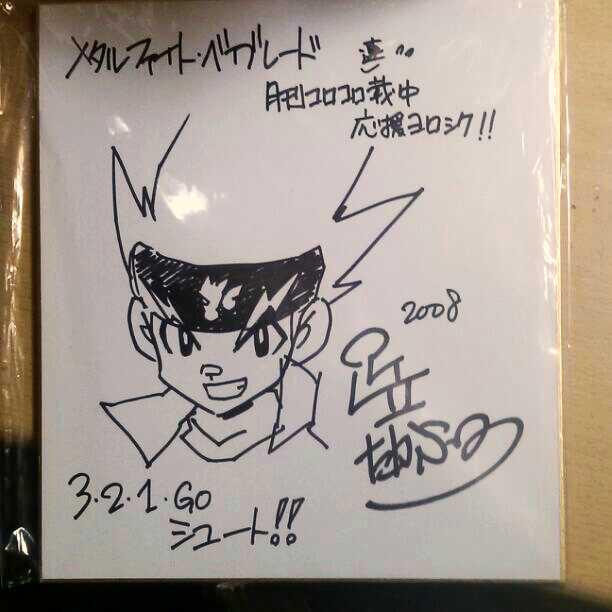 メタルファイト・ベイブレード 連
月刊コロコロ載中
応援ヨロシク!!
2008
足立
たかふみ
3・2・1・GO
シュート!!